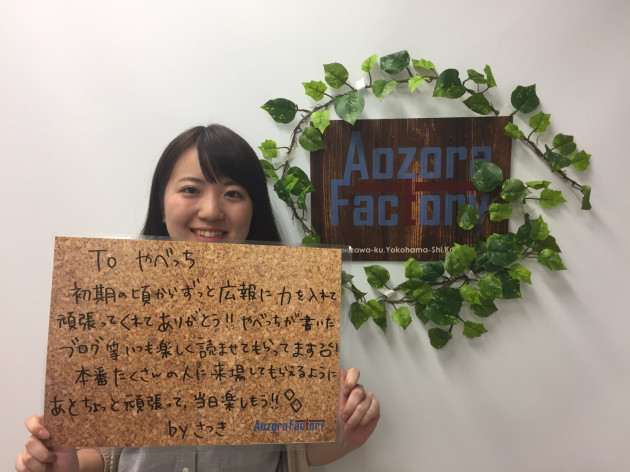 Aozora
Factory
kawa-ku.Yokohama-Shi.Ka
To やべっち
初期の頃からずっと広報に力を入れて
頑張ってくれてありがとう!!やべっちが書いた
ブログ いつも楽しく読ませてもらってます
本番たくさんの人に来場してもらえるように
あとちょっと頑張って、当日楽しもう!!
by さつき
Aozora Factory